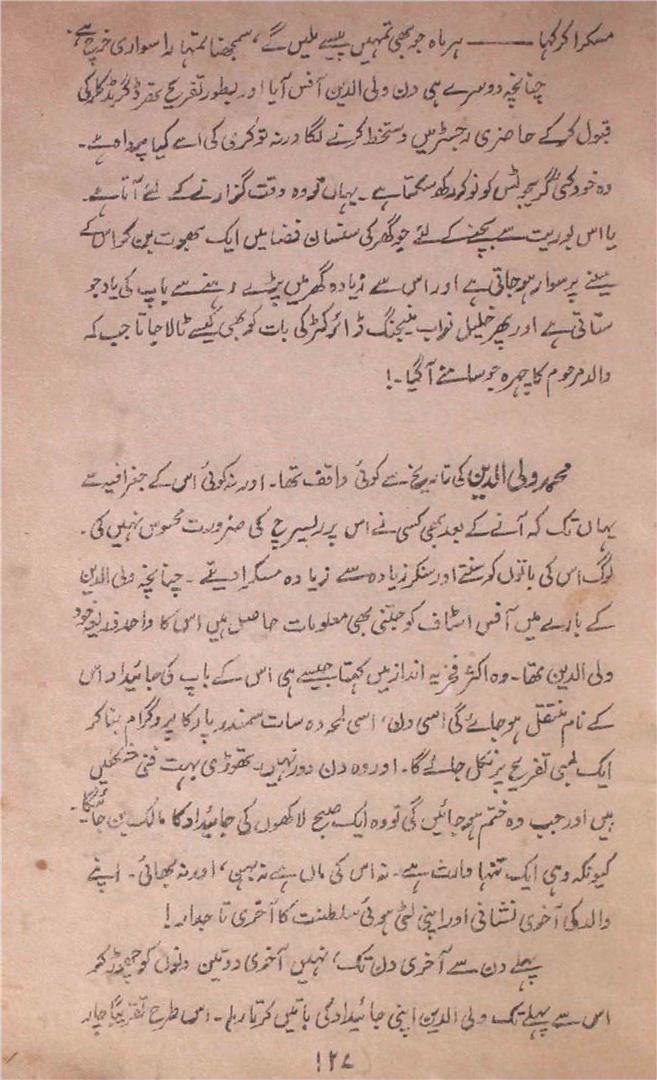 مسکرا کر کہا ——— ہر ماہ جو بھی تمہیں پیسے ملیں گے، سمجھنا تمہارا سواری خرچ ہے۔
چنانچہ دوسرے ہی دن ولی الدین آفس آیا اور بطور تفریح تھرڈ گریڈ کلرکی
قبول کر کے حاضری رجسٹر میں دستخط کرنے لگا ورنہ نوکری کی اسے کیا پرواہ ہے۔
وہ خود کئی گریجویٹس کو نوکر رکھ سکتا ہے۔ یہاں تو وہ وقت گزارنے کے لئے آتا ہے۔
یا اس بوریت سے بچنے کے لئے جو گھر کی سنسان فضا میں ایک بھوت بن کر اس کے
سینے پر سوار ہو جاتی ہے اور اس سے زیادہ گھر میں پڑے رہنے سے باپ کی یاد جو
ستاتی ہے اور پھر خلیل نواب منیجنگ ڈائرکٹر کی بات کو بھی کیسے ٹالا جاتا جب کہ
والد مرحوم کا چہرہ جو سامنے آ گیا۔!
محمد ولی الدین کی تاریخ سے کوئی واقف تھا۔ اور نہ کوئی اس کے جغرافیہ سے
یہاں تک کہ آنے کے بعد بھی کسی نے اس پر ریسرچ کی ضرورت محسوس نہیں کی۔
لوگ اس کی باتوں کو سنتے اور سنکر زیادہ سے زیادہ مسکرا دیتے۔ چنانچہ ولی الدین
کے بارے میں آفس اسٹاف کو جتنی بھی معلومات حاصل ہیں اس کا واحد ذریعہ خود
ولی الدین تھا۔ وہ اکثر فخریہ انداز میں کہتا جیسے ہی اس کے باپ کی جائیداد اس
کے نام منتقل ہو جائے گی اسی دن، اسی لمحہ وہ سات سمندر پار کا پروگرام بنا کر
ایک لمبی تفریح پر نکل جائے گا۔ اور وہ دن دور نہیں۔ تھوڑی بہت فنی مشکلیں
ہیں اور جب وہ ختم ہو جائیں گی تو وہ ایک صبح لاکھوں کی جائیداد کا مالک بن جائیگا۔
کیونکہ وہی ایک تنہا وارث ہے۔ نہ اس کی ماں ہے نہ بہن، اور نہ بھائی۔ اپنے
والد کی آخری نشانی اور اپنی لٹی ہوئی سلطنت کا آخری تاجدار!
پہلے دن سے آخری دن تک، نہیں آخری دو تین دنوں کو چھوڑ کر
اس سے پہلے تک ولی الدین اپنی جائیداد کی باتیں کرتا رہا۔ اس طرح تقریباً چار
۱۲۷